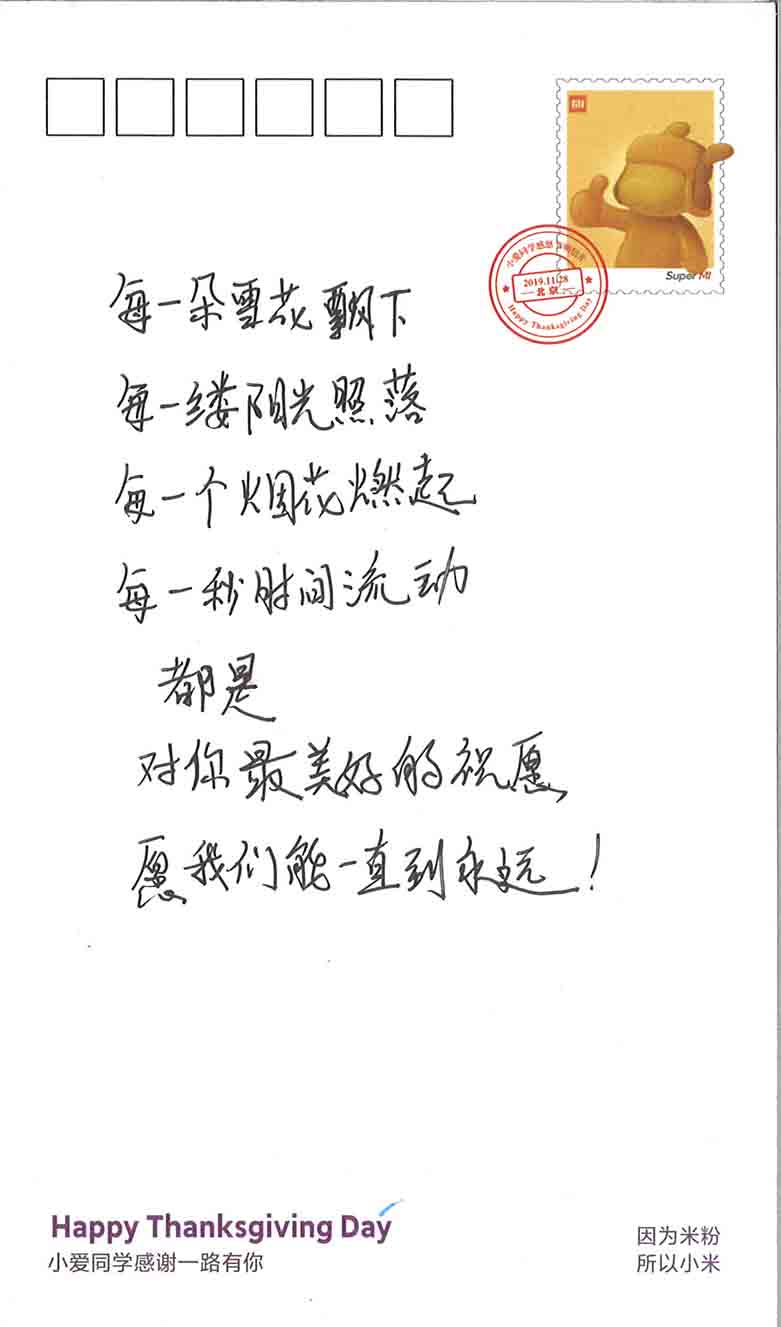 MI
Super MI
小爱同学感恩节明信片
2019.11.28
北京
Happy Thanksgiving Day
每一朵雪花飘下
每一缕阳光照落
每一个烟花燃起
每一秒时间流动
都是
对你最美好的祝愿
愿我们能一直到永远！
Happy Thanksgiving Day
小爱同学感谢一路有你
因为米粉
所以小米